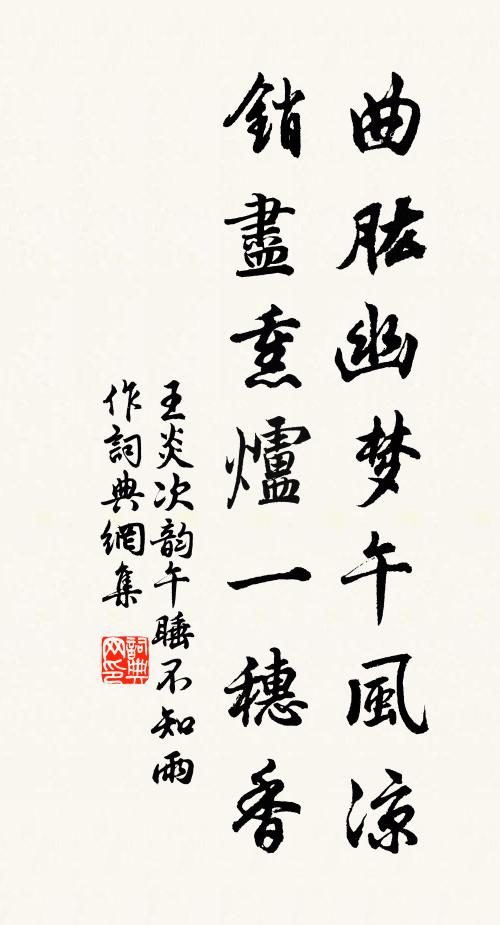 曲肱幽梦午風涼
銷盡熏爐一穗香
王炎次韵午睡不知雨
作詞典網集
詞典
网印